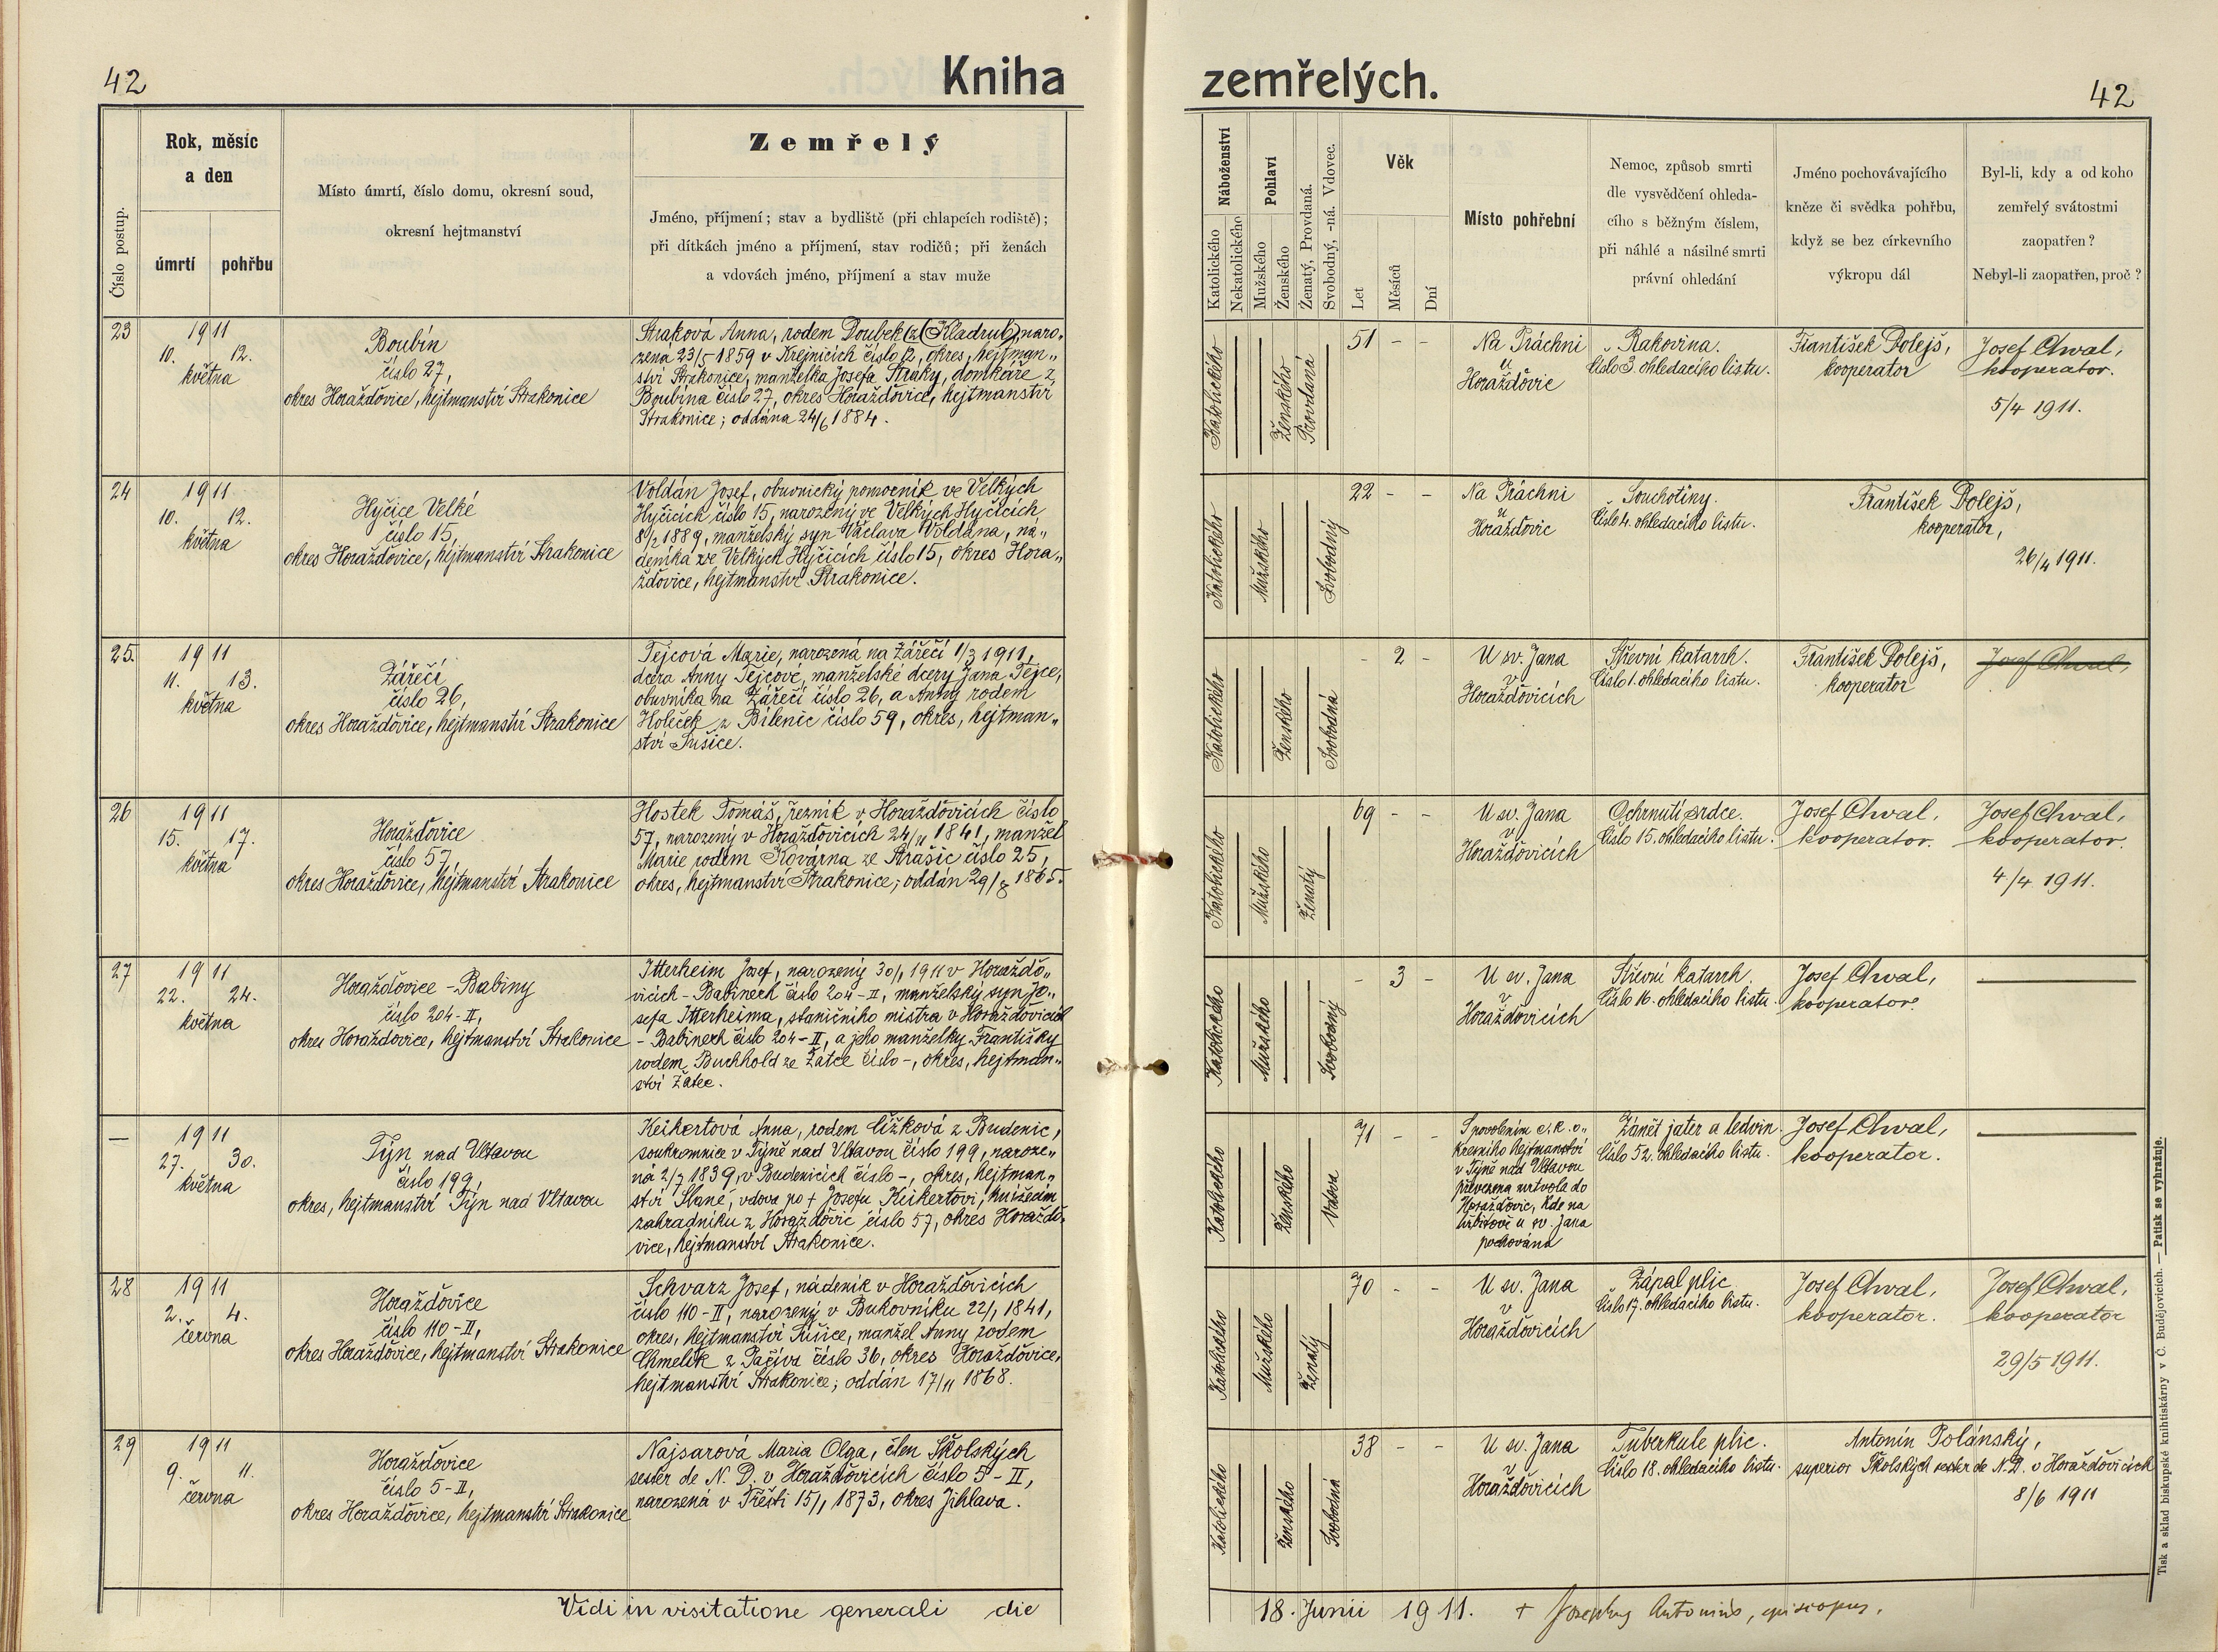 42
Kniha
zemřelých.
42
Číslo postup.
Rok, měsíc
a den
úmrtí
pohřbu
Místo úmrtí, číslo domu, okresní soud,
okresní hejtmanství
Zemřelý
Jméno, příjmení; stav a bydliště (při chlapcích rodiště);
při dítkách jméno a příjmení, stav rodičů; při ženách
a vdovách jméno, příjmení a stav muže
Náboženství
Katolického
Nekatolického
Pohlaví
Mužského
Ženského
Ženatý, Provdaná.
Svobodný, -ná. Vdovec.
Věk
Let
Měsíců
Dní
Místo pohřební
Nemoc, způsob smrti
dle vysvědčení ohleda-
cího s běžným číslem,
při náhlé a násilné smrti
právní ohledání
Jméno pochovávajícího
kněze či svědka pohřbu,
když se bez církevního
výkropu dál
Byl-li, kdy a od koho
zemřelý svátostmi
zaopatřen?
Nebyl-li zaopatřen, proč?
23
1911
10. 12.
května
Boubín
číslo 27,
okres Horažďovice, hejtmanství Strakonice
Straková Anna, rodem Doubek (z Kladrub), naro-
zena 23/5 1859 v Krejnicích číslo 12, okres, hejtman-
ství Strakonice, manželka Josefa Straky, domkáře z
Boubína číslo 27, okres Horažďovice, hejtmanství
Strakonice; oddána 24/6 1884.
Katolického
Ženského
Provdaná
51 - -
Na Práchni
u
Horažďovic
Rakovina.
Číslo 3. ohledacího listu.
František Dolejš,
kooperator
Josef Chval,
kooperator.
5/4 1911.
24
1911
10. 12.
května
Hyčice Velké
číslo 15,
okres Horažďovice, hejtmanství Strakonice
Voldán Josef, obuvnický pomocník ve Velkých
Hyčicích číslo 15, narozený ve Velkých Hyčicích
8/2 1889, manželský syn Václava Voldána, ná-
deníka ve Velkých Hyčicích číslo 15, okres Hora-
žďovice, hejtmanství Strakonice.
Katolického
Mužského
Svobodný
22 - -
Na Práchni
u
Horažďovic
Souchotiny.
Číslo 4. ohledacího listu.
František Dolejš,
kooperator,
26/4 1911.
25.
1911
11. 13.
května
Zářečí
číslo 26,
okres Horažďovice, hejtmanství Strakonice
Tejcová Marie, narozená na Zářečí 1/3 1911,
dcera Anny Tejcové, manželské dcery Jana Tejce,
obuvníka na Zářečí číslo 26, a Anny rodem
Holeček z Bílenic číslo 59, okres, hejtman-
ství Sušice.
Katolického
Ženského
Svobodná
- 2 -
U sv. Jana
v
Horažďovicích
Střevní katarrh.
Číslo 1. ohledacího listu.
František Dolejš,
kooperator
Josef Chval,
26
1911
15. 17.
května
Horažďovice
číslo 57,
okres Horažďovice, hejtmanství Strakonice
Hostek Tomáš, řezník v Horažďovicích číslo
57, narozený v Horažďovicích 24/11 1841, manžel
Marie rodem Kovárna ze Strašic číslo 25,
okres, hejtmanství Strakonice; oddán 29/8 1865.
Katolického
Mužského
Ženatý
69 - -
U sv. Jana
v
Horažďovicích
Ochrnutí srdce.
Číslo 15. ohledacího listu.
Josef Chval,
kooperator.
Josef Chval,
kooperator.
4/4 1911.
27
1911
22. 24.
května
Horažďovice - Babiny
číslo 204-II,
okres Horažďovice, hejtmanství Strakonice
Itterheim Josef, narozený 30/1 1911 v Horažďo-
vicích - Babinech číslo 204-II, manželský syn Jo-
sefa Itterheima, staničního mistra v Horažďovicích
- Babinech číslo 204-II, a jeho manželky Františky
rodem Buchhold ze Žatce číslo -, okres, hejtman-
ství Žatec.
Katolického
Mužského
Svobodný
- 3 -
U sv. Jana
v
Horažďovicích
Střevní katarrh.
Číslo 16. ohledacího listu.
Josef Chval,
kooperator.
—
1911
27. 30.
května
Týn nad Vltavou
číslo 199,
okres, hejtmanství Týn nad Vltavou
Keikertová Anna, rodem Čížková z Budenic,
soukromnice v Týně nad Vltavou číslo 199, naroze-
ná 2/7 1839, v Budenicích číslo -, okres, hejtman-
ství Slané, vdova po † Josefu Keikertovi, knížecím
zahradníku z Horažďovic číslo 57, okres Horažďo-
vice, hejtmanství Strakonice.
Katolického
Ženského
Vdova
71 - -
S povolením c. k. o-
kresního hejtmanství
v Týně nad Vltavou
převezena mrtvola do
Horažďovic, kde na
hřbitově u sv. Jana
pochována
Zánět jater a ledvin.
Číslo 52. ohledacího listu.
Josef Chval,
kooperator.
28
1911
2. 4.
června
Horažďovice
číslo 110-II,
okres Horažďovice, hejtmanství Strakonice
Schvarz Josef, nádeník v Horažďovicích
číslo 110-II, narozený v Bukovníku 22/1 1841,
okres, hejtmanství Sušice, manžel Anny rodem
Chmelík z Pačiva číslo 36, okres Horažďovice,
hejtmanství Strakonice; oddán 17/11 1868.
Katolického
Mužského
Ženatý
70 - -
U sv. Jana
v
Horažďovicích
Zápal plic
Číslo 17. ohledacího listu.
Josef Chval,
kooperator.
Josef Chval,
kooperator
29/5 1911.
29
1911
9. 11.
června
Horažďovice
číslo 5-II,
okres Horažďovice, hejtmanství Strakonice
Najsarová Maria Olga, člen Školských
sester de N. D. v Horažďovicích číslo 5-II,
narozená v Třešti 15/1 1873, okres Jihlava.
Katolického
Ženského
Svobodná
38 - -
U sv. Jana
v
Horažďovicích
Tuberkule plic.
Číslo 18. ohledacího listu.
Antonín Polánský,
superior Školských sester de N. D. v Horažďovicích
8/6 1911
Vidi in visitatione generali die 18. Junii 1911. + Josephus Antonius, episcopus.
Tisk a sklad biskupské knihtiskárny v Č. Budějovicích. — Patisk se vyhražuje.